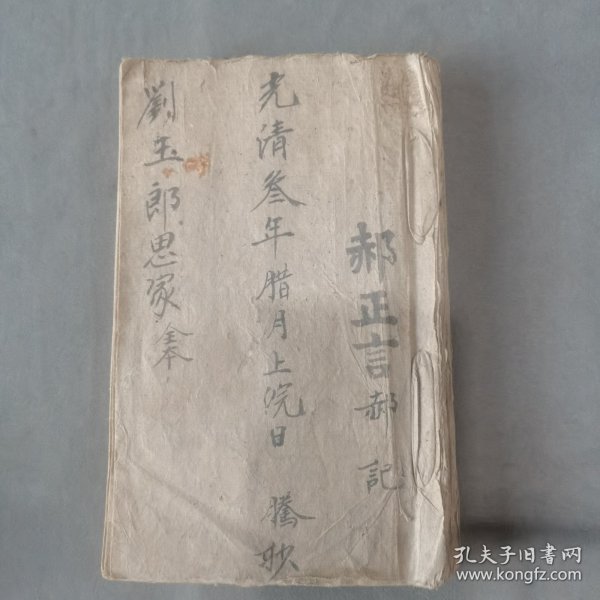 郝正言郝記
光清叁年腊月上浣日 騰耖
劉玉郎思家全本
孔夫子旧书网
www.kongfz.com